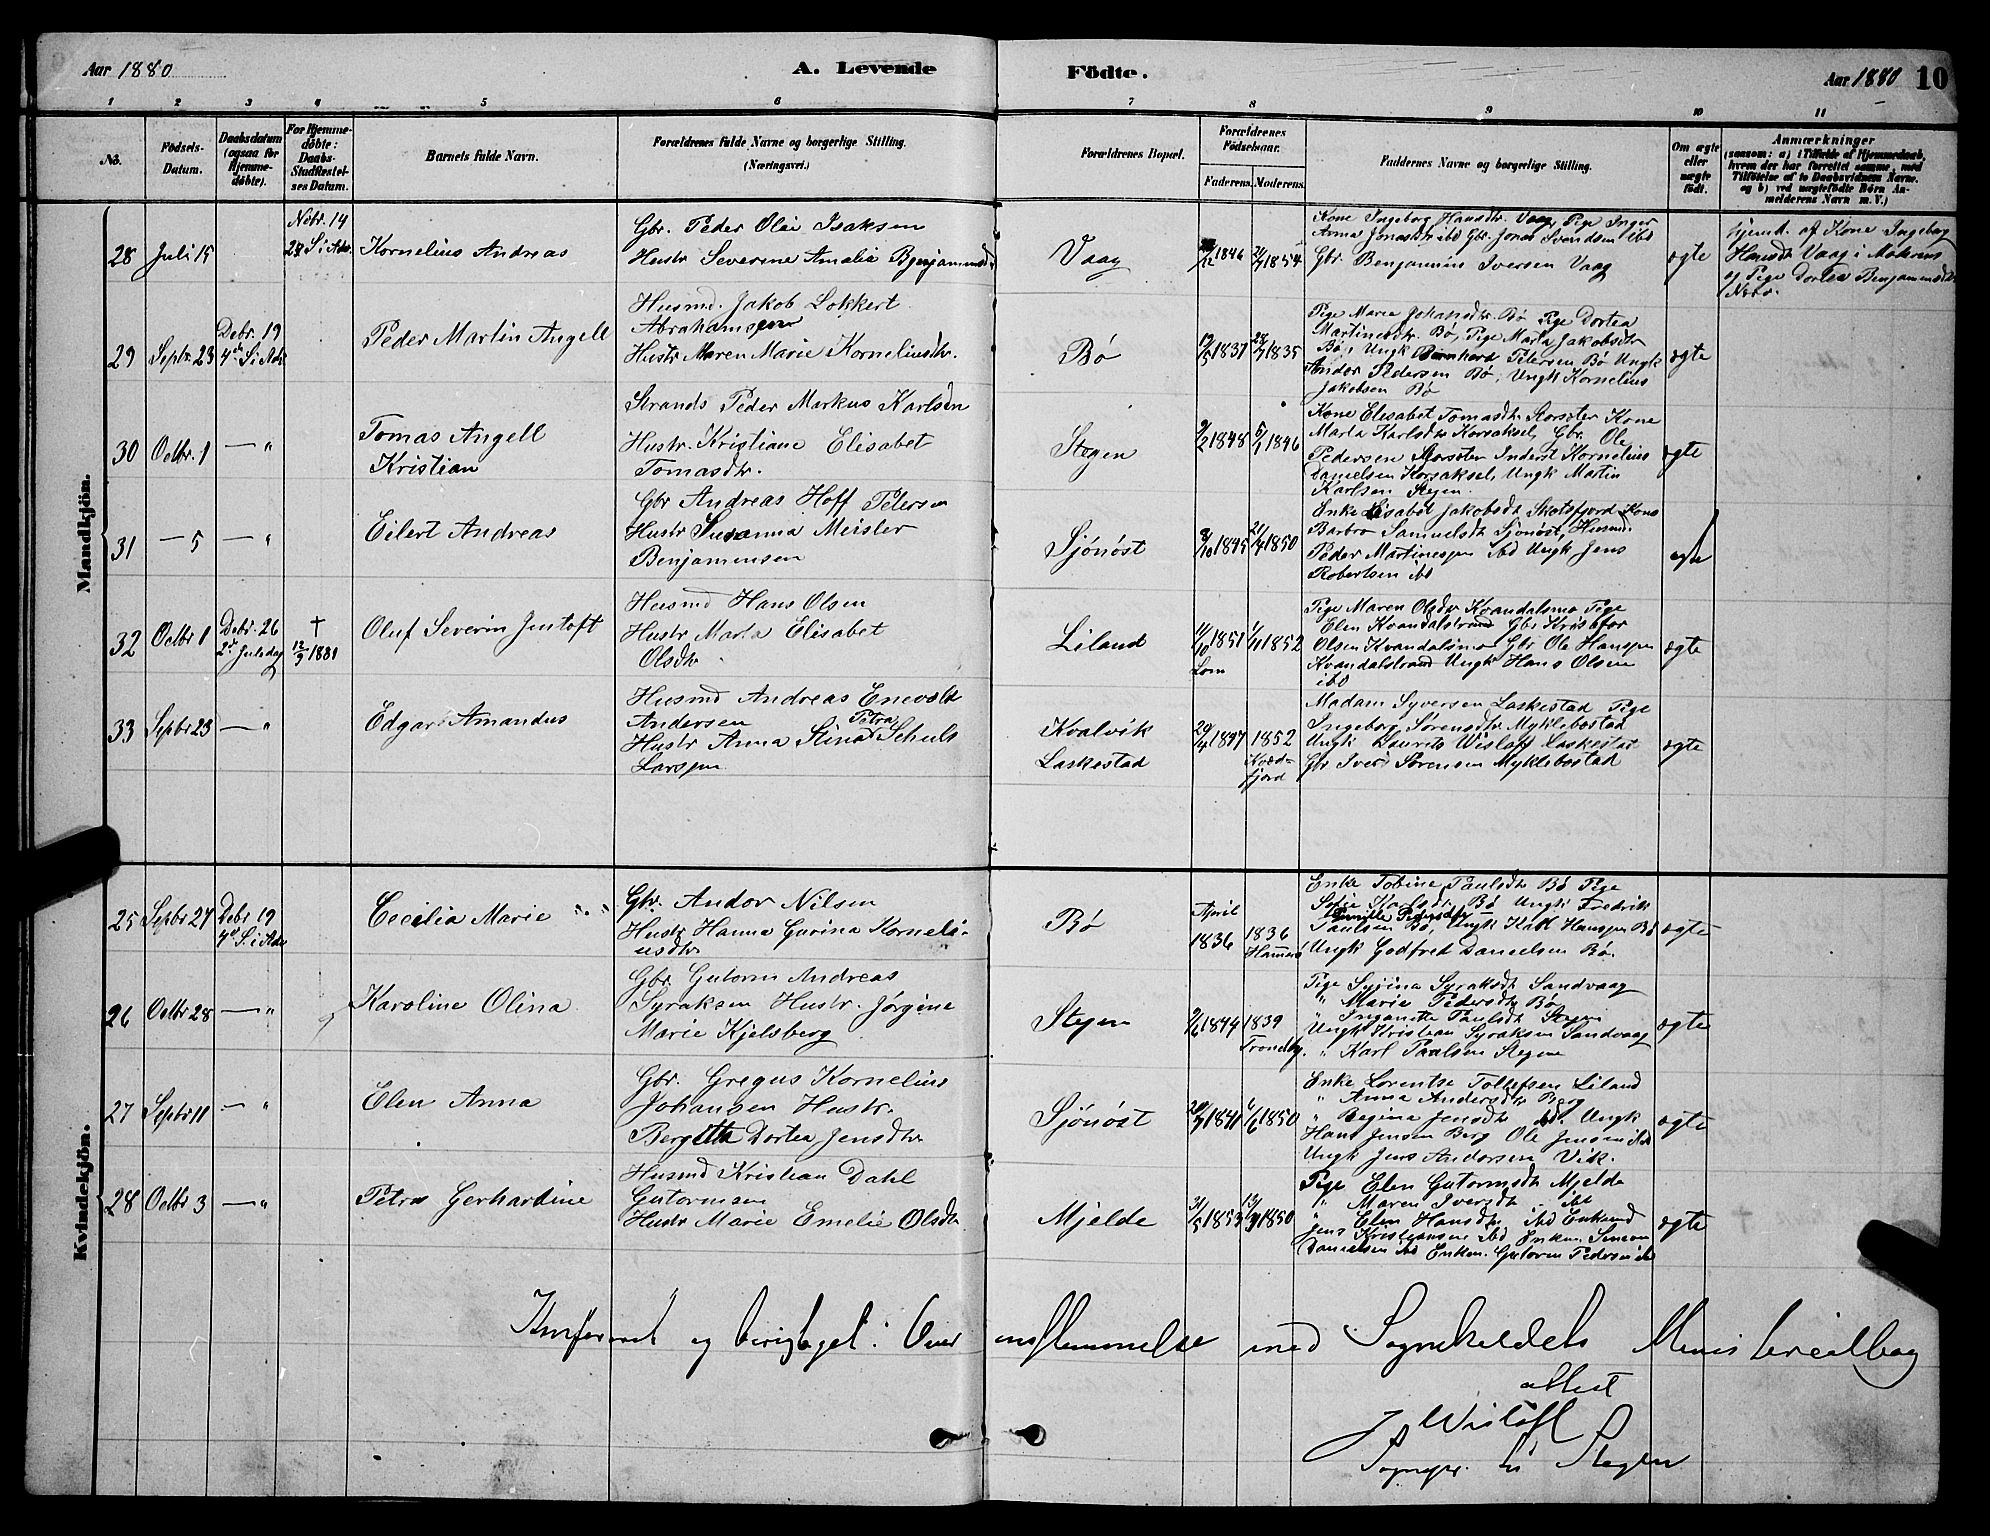 Aar 1880
A. Levende
Födte.
Aar 1880
10
1 2 3 4 5 6 7 8 9 10 11
No.
Födsels-
Datum.
Daabsdatum
(ogsaa for
Hjemme-
döbte).
For Hjemme-
döbte:
Daabs-
Stadfæstel-
ses Datum.
Barnets fulde Navn.
Forældrenes fulde Navne og borgerlige Stilling.
(Næringsvei.)
Forældrenes Bopæl.
Forældrenes
Födselsaar.
Faderens. Moderens.
Faddernes Navne og borgerlige Stilling.
Om ægte
eller
uægte
födt.
Anmærkninger
(saasom: a) i Tilfælde af Hjemmedaab,
hvem der har forrettet samme, med
Tilföielse af to Daabsvidners Navne,
og b) ved uægtefödte Börn An-
melderens Navn m. V.)
Mandkjön.
28
Juli 15
Nobr. 14
Kornelius Andreas
Gbr. Peder Olai Isaksen
Hustr Severine Amalia Benjaminsd.
Vaag
1846
1854
Kone Ingeborg Hansdtr. Vaag, Pige Inger
Anna Jonasdtr ibd Gbr. Jonas Svendsen ibd
Gbr. Benjamin Iversen Vaag
ægte
hjemd. af Kone Ingeborg
Hansdt Vaag i
og Pige Dortea Benjaminsdtr
29
Septr. 23
Debr. 19
4de S. i Adv
Peder Martin Angell
Husmd. Jakob Lokkert
Abrahamsen
Hustr Maren Marie Korneliusdtr.
Bø
19/5 1837
1835
Pige Maria Johansdtr. Bø Pige Dortea
Martinusdtr. Bø, Pige Marta Jakobsdtr
Bø, Ungk Bernhard Petersen Bø Ungk
Andor Pedersen Bø, Ungk Kornelius
Jakobsen Bø
ægte
30
Octbr. 1
— "
Tomas Angell
Kristian
Strands. Peder Markus Karlsen
Hustr. Kristiane Elisabet
Tomasdtr.
Stegen
9/2 1848
5/7 1846
Kone Elisabet Tomasdtr. Kone
Marta Karlsdtr Korsaksel, Gbr. Ole
Pedersen Inderst Kornelius
Danielsen Korsaksel, Ungk Martin
Karlsen Stegen.
ægte
31
— 5
— "
Eilert Andreas
Gbr Andreas Hoff Petersen
Hustr Susanna Meisler
Benjaminsen
Sjönöst
8/10 1845
1850
Enke Elisabet Jakobsdt Skotsfjord Kone
Barbro Samuelsdt Sjönöst, Husmd.
Peder Martinussen ibd Ungk Jens
Robertsen ibd
ægte
32
Octbr 1
Debr. 26
2d Juledag
†
12/9 1881
Oluf Severin Jentoft
Husmd Hans Olsen
Hustr Marta Elisabet
Olsdtr.
Liland
11/10 1851
Lom
1852
Pige Maren Olsdtr Kvandalsmo Pige
Elen Kvandalstrand Gbr Kristofer
Olsen Kvandalsmo Gbr Ole Hanssen
Kvandalstrand Ungk Hans Olsen
ibd
ægte
33
Septbr 23
— "
Edgar Amandus
Husmd Andreas Enevold
Andersen
Hustr Anna Stina Petra Schuls
Larssen
Kvalvik
Laskestad
1847
1852
Kvæd-
fjord
Madam Syversen Laskestad Pige
Ingeborg Sørensdtr. Myklebostad
Ungk Laurits Wisløff Laskestad
Gbr Iver Sørensen Myklebostad
ægte
Kvindekjön.
25
Septbr 27
Debr 19
4de S. i Adv
Cecilia Marie
Gbr. Andor Nilsen
Hustr Hanna Gurina Korneli-
usdtr
Bø
April
1836
1836
Hamerø
Enke Tobine Paulsdtr Bø Pige
Sofie Karlsdtr. Bø Ungk Fredrik
Pernille Pedersdtr
Paulsen Bø, Ungk Hanssen Bø
Ungk Godfred Danielsen Bø.
ægte
26
Octbr 28
— "
Karoline Olina
Gbr. Gutorm Andreas
Syraksen Hustr. Jørgine
Marie Kjelsberg
Stegen
9/6 1844
1839
Trondhj.
Pige Syrina Syraksdt Sandvaag
" Marie Pedersdtr Bø
" Inganette Paulsdt Stegen
Ungk Kristian Syraksen Sandvaag
" Karl Paulsen Stegen
ægte
27
Septbr 11
— "
Elen Anna
Gbr. Gregus Kornelius
Johansen Hustr.
Bergitta Dortea Jensdtr
Sjönöst
1841
1/6 1850
Enke Lorentse Tollefsen Liland
" Anna Andersdtr Berg
" Regina Jensdtr ibd. Ungk
Hans Jensen Berg Ole Jensen ibd
Ungk Jens Andersen Vik.
ægte
28
Octbr 3
— "
Petra Gerhardine
Husmd Kristian Dahl
Gutormsen
Hustr Marie Emelie Olsdtr
Mjelde
31/5 1853
1850
Pige Elen Gutormsdt Mjelde
" Maren Iversdtr ibd
" Elen Hansdtr ibd Enkemd
Jens Kristiansen ibd Enkem. Simon
Danielsen ibd Enkem. Gutorm Pedersen ibd
ægte
Konfereret og berigtiget i Over ensstemmelse med Sognekaldets Ministerialbog
attest
J Wisløff
Sognepr. til Stegen